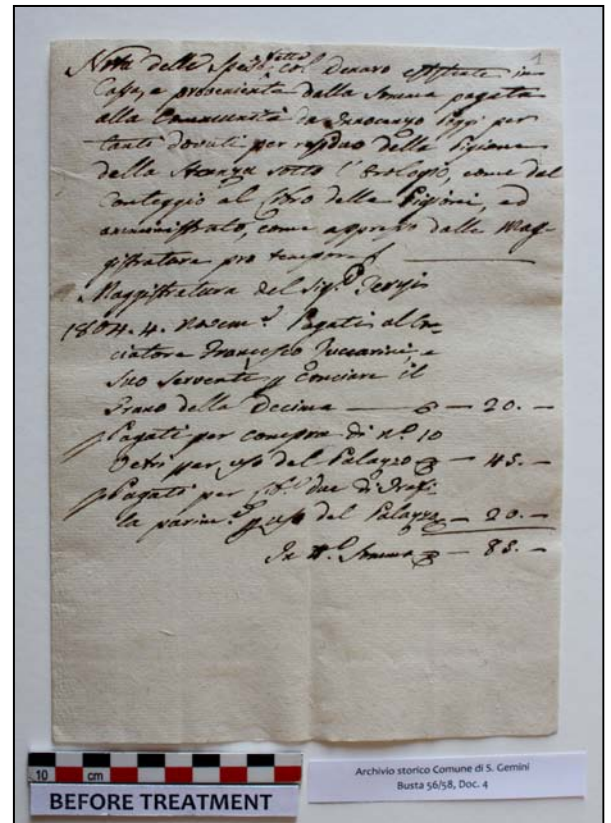 1
Nota delle Spese fatte col Denaro esistente in
Cassa, e proveniente dalla Somma pagata
alla Communità da Innocenzo Poggi per
tanti dovuti per residuo della Pigione
della Stanza sotto l'Orologio, come dal
Conteggio al Libro delle Pigioni, ed
amministrato, come appresso dalle Mag-
gistrature pro tempore
Maggistratura del Sig.r
1804. 4. Novem.e Pagati al
ciatore Francesco Zuccarini, e
Suo Servente p conciare il
Grano della Decima — — 20. —
Pagati per compra di n.o 10
Vetri per uso del Palazzo — 45. —
Pagati per due di
la p uso del Palazzo — 20. —
In Somma — 85. —
10 cm
BEFORE TREATMENT
Archivio storico Comune di S. Gemini
Busta 56/58, Doc. 4